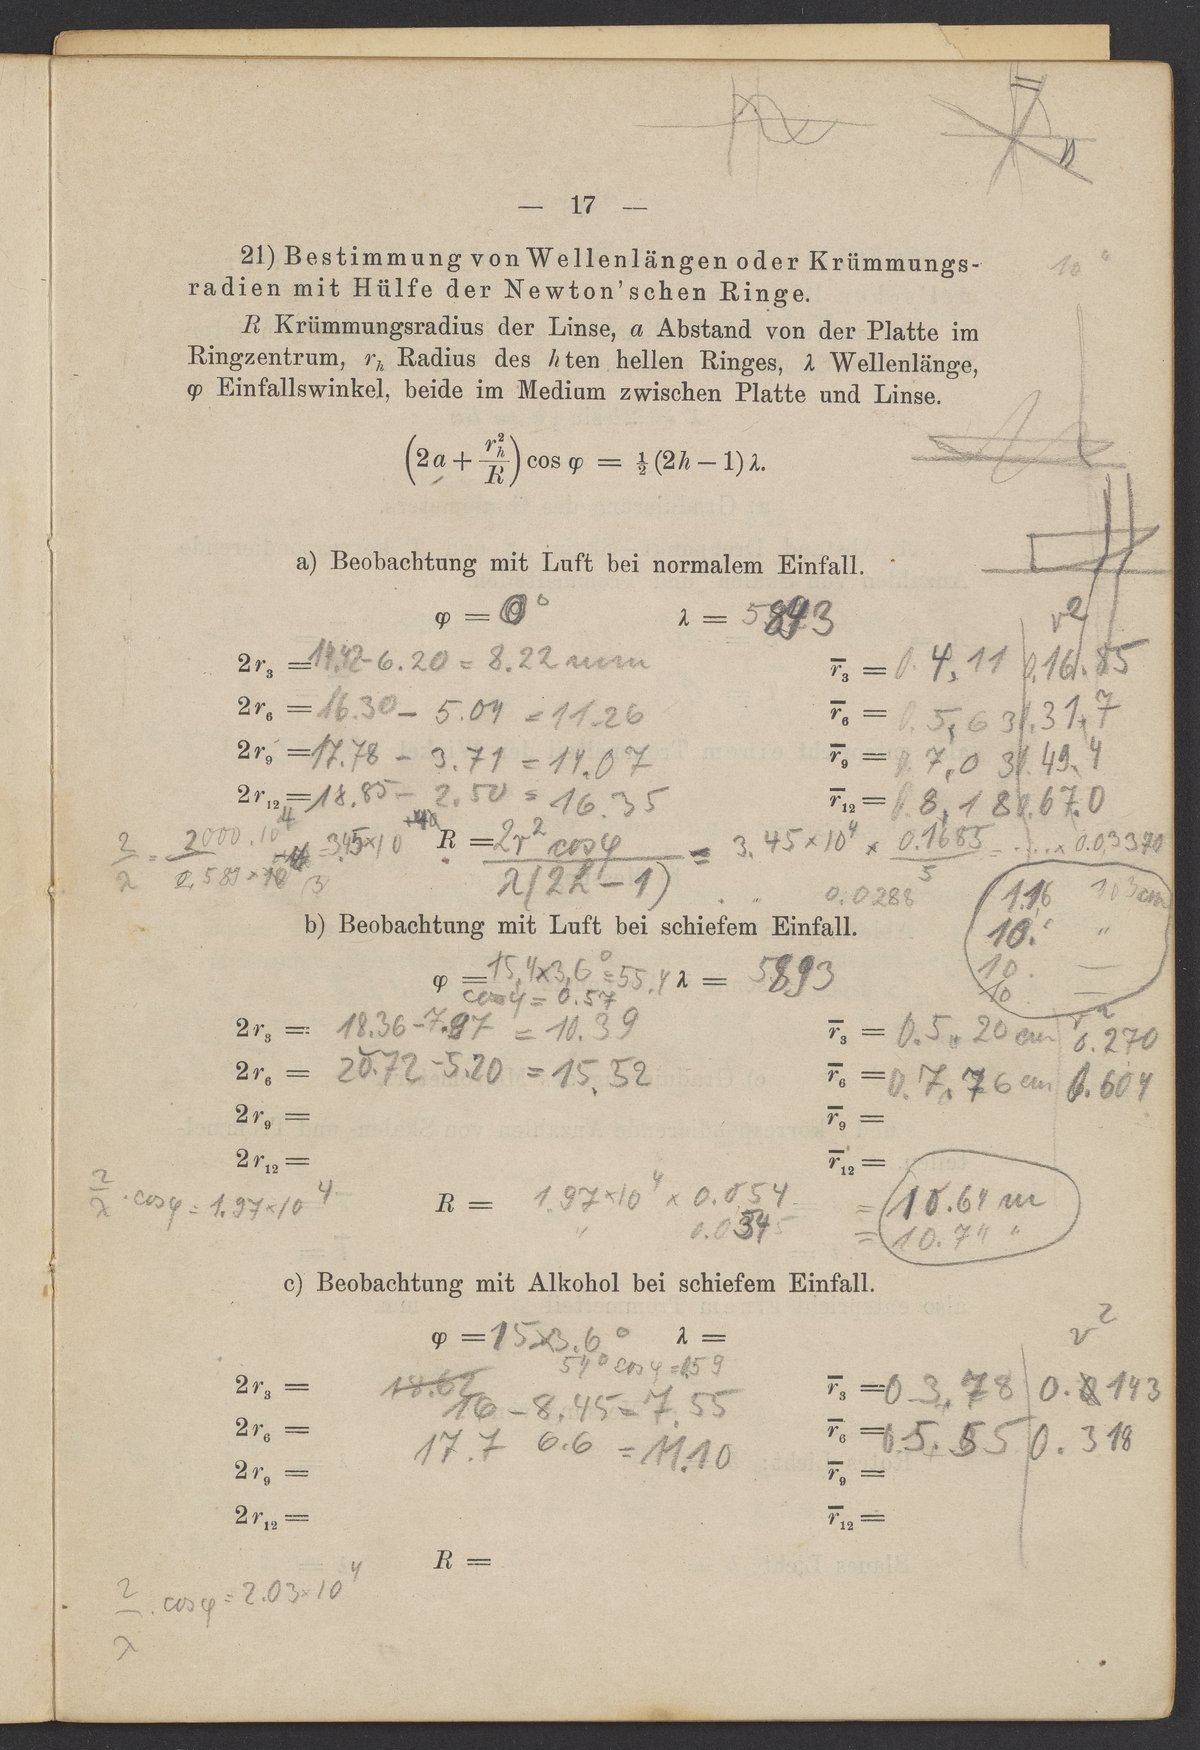 — 17 —
21) Bestimmung von Wellenlängen oder Krümmungs-
radien mit Hülfe der Newton'schen Ringe.
10"
R Krümmungsradius der Linse, a Abstand von der Platte im
Ringzentrum, r_h Radius des hten hellen Ringes, λ Wellenlänge,
φ Einfallswinkel, beide im Medium zwischen Platte und Linse.
(2a + r_h²/R) cos φ = ½ (2h − 1) λ.
a) Beobachtung mit Luft bei normalem Einfall.
φ = 0° λ = 5893 r²
2r₃ = 14.42 - 6.20 = 8.22 mm r̅₃ = 0.4,11 0.16.85
2r₆ = 16.30 - 5.04 = 11.26 r̅₆ = 0.5,63 .31,7
2r₉ = 17.78 - 3.71 = 14.07 r̅₉ = 0.7,03 .49.4
2r₁₂ = 18.85 - 2.50 = 16.35 r̅₁₂ = 0.8,18 0.67.0
2/λ = = 3.45×10 R = 2r² cosφ / λ(2h-1) = 3.45×10⁴ × 0.1685/5 = ....× 0.03370
0.0288 1.16 10³cm
10. "
10. —
10 —
b) Beobachtung mit Luft bei schiefem Einfall.
φ = 15,4×3,6° = 55.4 λ = 5893
cosφ = 0.57
r²
2r₃ = 18.36 - 7.97 = 10.39 r̅₃ = 0.5,20 cm 0.270
2r₆ = 20.72 - 5.20 = 15.52 r̅₆ = 0.7,76 cm 0.604
2r₉ = r̅₉ =
2r₁₂ = r̅₁₂ =
2/λ · cosφ = 1.97×10⁴ R = 1.97×10⁴ × 0.054 = 10.64 m
" = 10.74 "
c) Beobachtung mit Alkohol bei schiefem Einfall.
φ = 15×3.6° λ = r²
54° cosφ = 0.59
2r₃ = 18.62 r̅₃ = 0 3,78 0.143
16 - 8.45 = 7.55
2r₆ = r̅₆ = 0 5.55 0.318
17.7 6.6 = 11.10
2r₉ = r̅₉ =
2r₁₂ = r̅₁₂ =
R =
2/λ · cosφ = 2.03×10⁴